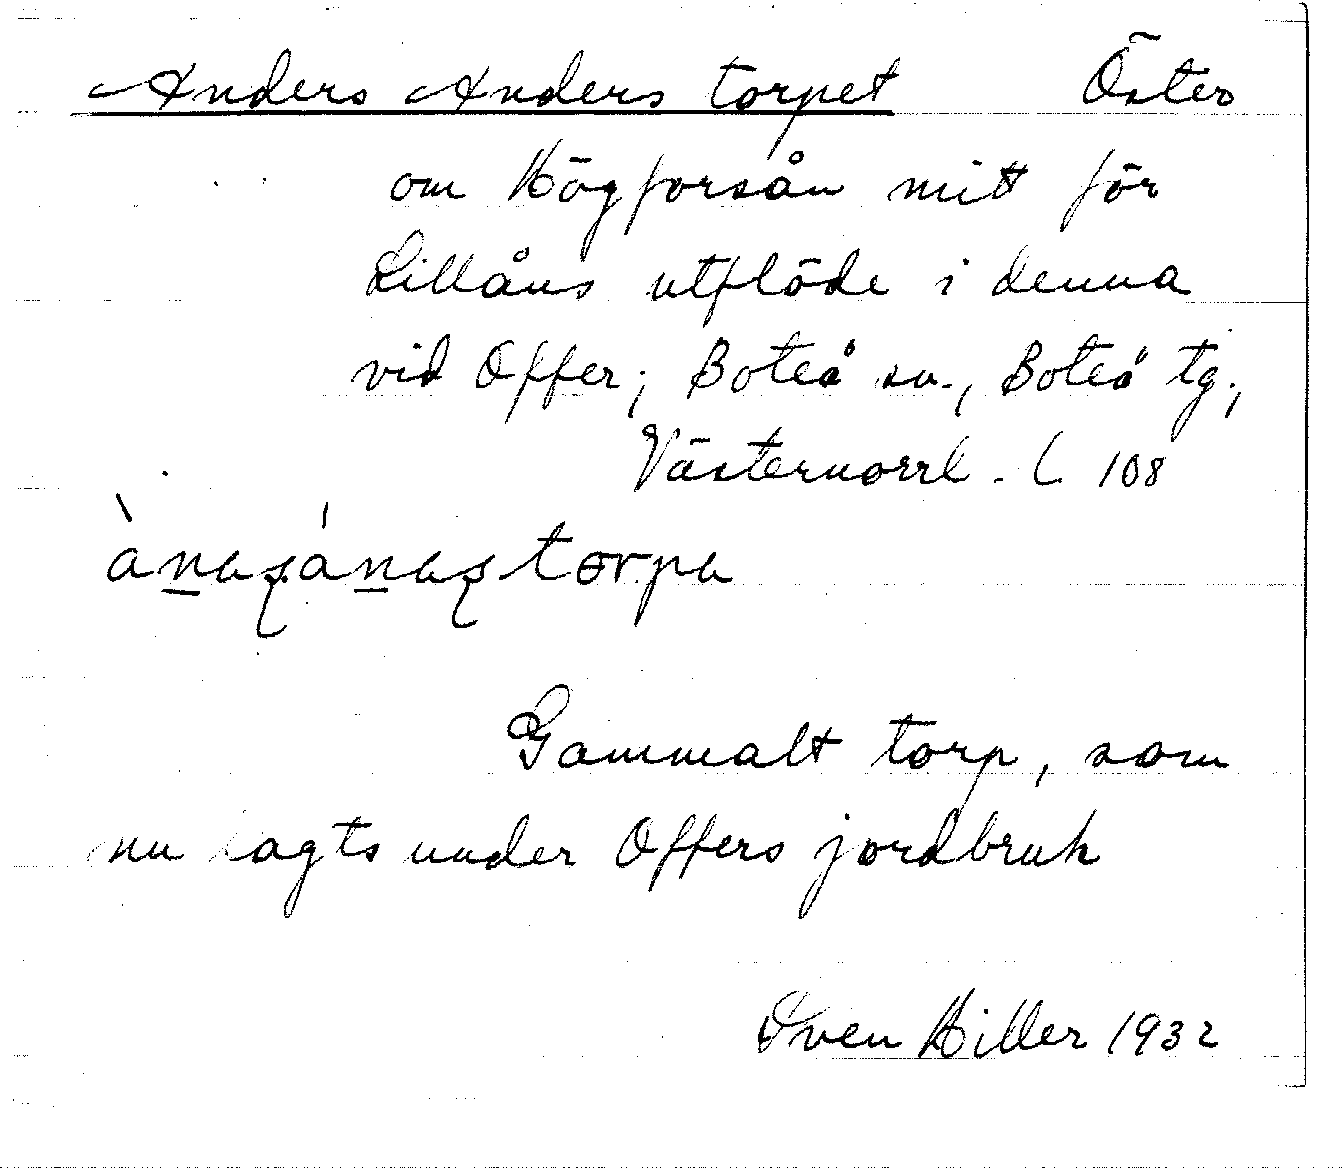 Anders Anders torpet Öster
om Högforsån mitt för
Lillåns utflöde i denna
vid Offer; Boteå sn., Boteå tg.;
Västernorrl. l 108
ànasánastorpa
Gammalt torp, som
nu lagts under Offers jordbruk
Sven Hiller 1932